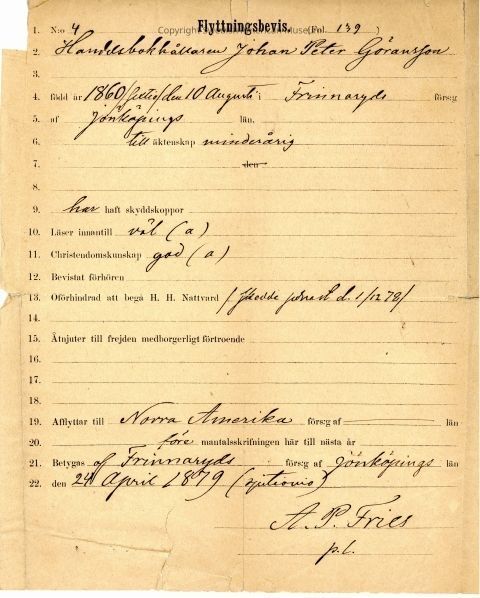 Flyttningsbevis.
1. N:o 4 (Fol. 139
2. Handelsbokhållaren Johan Peter Göransson
3.
4. född år 1860 /sextio/ den 10 Augusti i Frinnaryds förs:g
5. af Jönköpings län.
6. till äktenskap minderårig
7. den
8.
9. har haft skyddskoppor
10. Läser innantill väl (a)
11. Christendomskunskap god (a)
12. Bevistat förhören
13. Oförhindrad att begå H. H. Nattvard / skedde senast d. 1/12 78/
14.
15. Åtnjuter till frejden medborgerligt förtroende
16.
17.
18.
19. Afflyttar till Norra Amerika förs:g af län
20. före mantalsskrifningen här till nästa år
21. Betygas af Frinnaryds förs:g af Jönköpings län
22. den 24 April 1879 (sjutionio)
A. P. Fries
p.l.